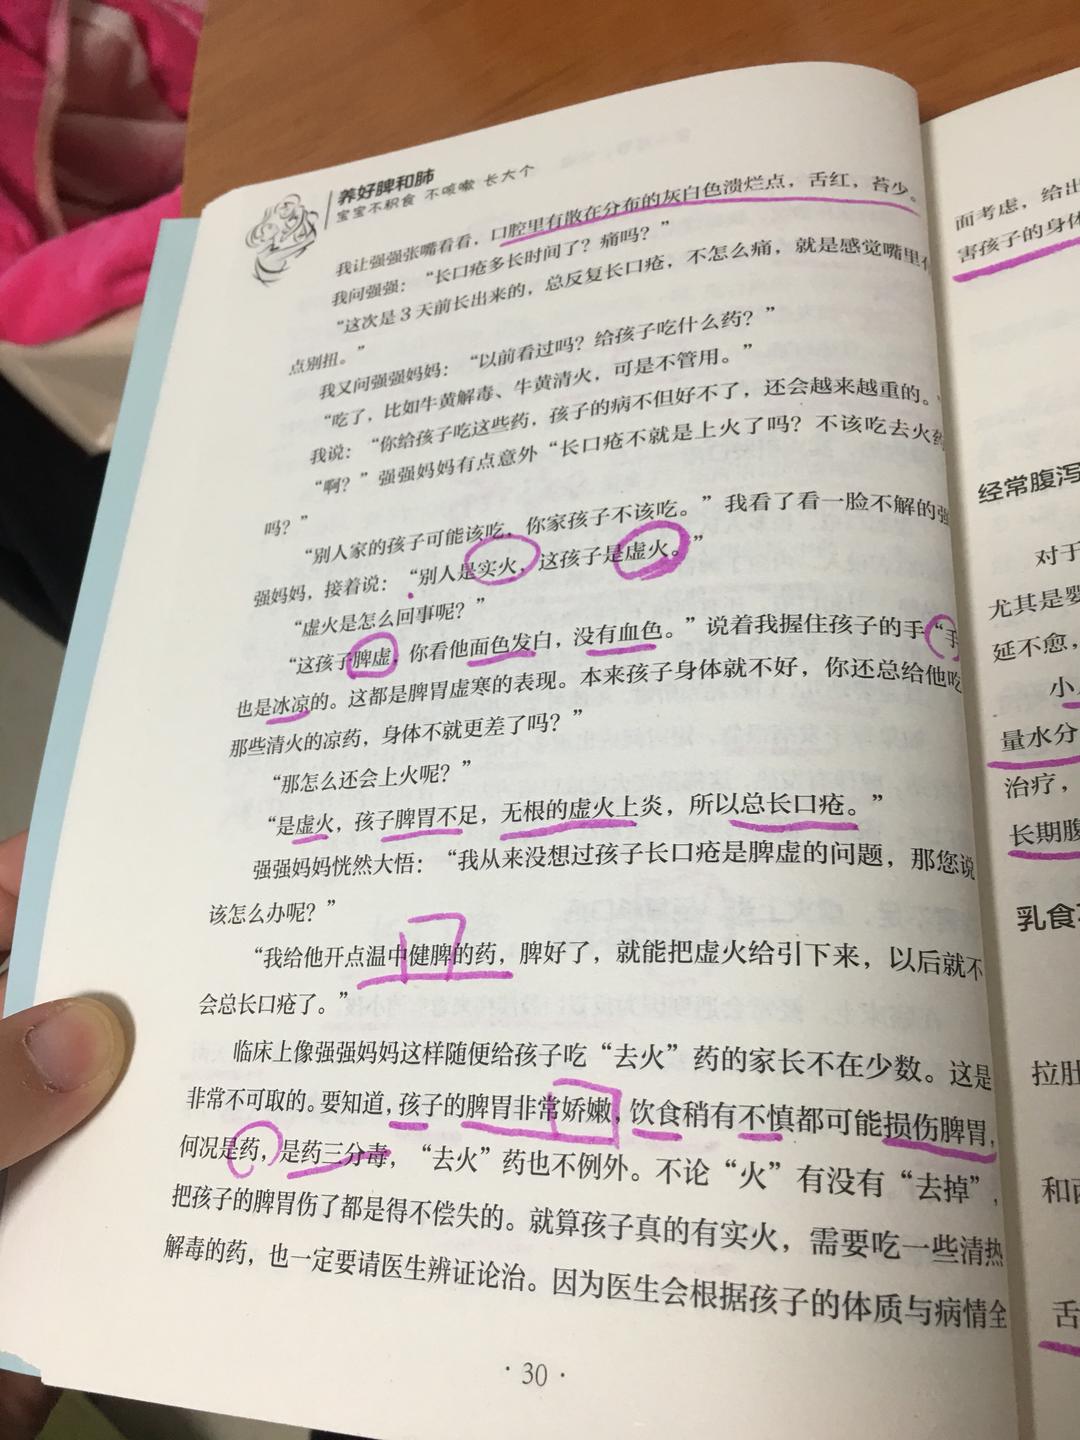 养好脾和肺
宝宝不积食 不咳嗽 长大个
我让强强张嘴看看，口腔里有散在分布的灰白色溃烂点，舌红，苔少。
我问强强：“长口疮多长时间了？痛吗？”
“这次是3天前长出来的，总反复长口疮，不怎么痛，就是感觉嘴里
点别扭。”
我又问强强妈妈：“以前看过吗？给孩子吃什么药？”
“吃了，比如牛黄解毒、牛黄清火，可是不管用。”
我说：“你给孩子吃这些药，孩子的病不但好不了，还会越来越重的。”
“啊？”强强妈妈有点意外“长口疮不就是上火了吗？不该吃去火药
吗？”
“别人家的孩子可能该吃，你家孩子不该吃。”我看了看一脸不解的强
强妈妈，接着说：“别人是实火，这孩子是虚火。”
“虚火是怎么回事呢？”
“这孩子脾虚，你看他面色发白，没有血色。”说着我握住孩子的手“手
也是冰凉的。这都是脾胃虚寒的表现。本来孩子身体就不好，你还总给他吃
那些清火的凉药，身体不就更差了吗？”
“那怎么还会上火呢？”
“是虚火，孩子脾胃不足，无根的虚火上炎，所以总长口疮。”
强强妈妈恍然大悟：“我从来没想过孩子长口疮是脾虚的问题，那您说
该怎么办呢？”
“我给他开点温中健脾的药，脾好了，就能把虚火给引下来，以后就不
会总长口疮了。”
临床上像强强妈妈这样随便给孩子吃“去火”药的家长不在少数。这是
非常不可取的。要知道，孩子的脾胃非常娇嫩，饮食稍有不慎都可能损伤脾胃，
何况是药，是药三分毒，“去火”药也不例外。不论“火”有没有“去掉”，
把孩子的脾胃伤了都是得不偿失的。就算孩子真的有实火，需要吃一些清热
解毒的药，也一定要请医生辨证论治。因为医生会根据孩子的体质与病情全
·30·
面考虑，给出
害孩子的身体
经常腹泻
对于
尤其是婴
延不愈，
小
量水分
治疗，
长期腹
乳食
拉肚
和
舌